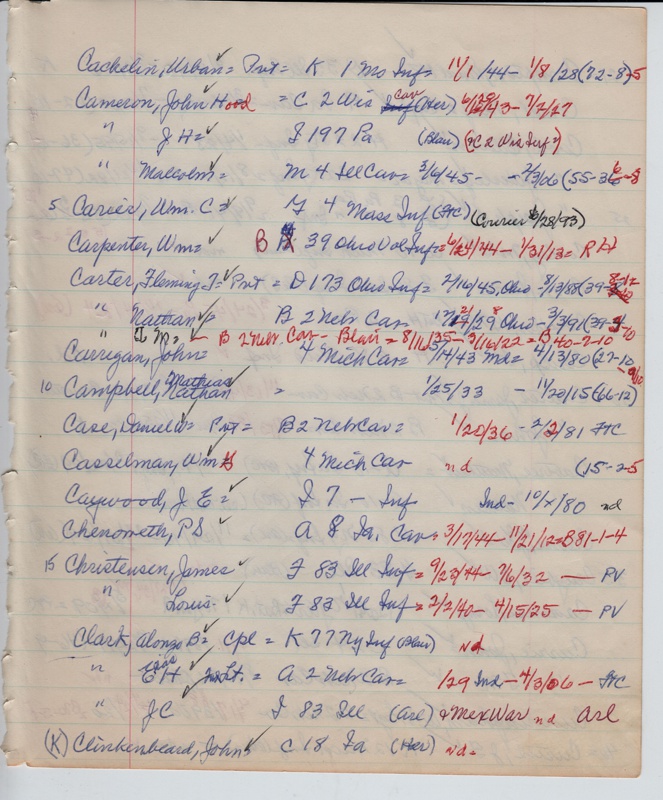 Cackelin, Urban = Pvt = K 1 Mo Inf = 11/1/44 - 1/8/28 (72-8-5
Cameron, John Hood = C 2 Wis Cav (Her) - 7/7/27
" J H = I 197 Pa (Blair) ("C 2 Wis Inf")
" Malcolm = M 4 Ill Cav = 3/6/45 - - 2/3/06 (55-36
5 Carier, Wm. C = 4 Mass Inf (FtC) (Courier /28/93)
Carpenter, Wm = B 39 Ohio Vol Inf = 6/24/44 - 1/31/13 =
Carter, Fleming J = Pvt = D 173 Ohio Inf = 2/16/45, Ohio - 8/13/88 (39-
" Nathan = B 2 Nebr Cav = /29 Ohio - 3/3/91 (39-
" = B 2 Nebr. Cav - Blair = 8/16/35 - 3/16/22 = B 40-2-10
Carrigan, John = 4 Mich Cav = /14/43 Md = 4/13/80 (27-10
10 Campbell, Nathan Mathias = 1/25/33 - 11/20/15 (66-12)
Case, Daniel W = Pvt = B 2 Neb Cav = 1/20/36 - 2/2/81 FtC
Casselman, Wm 4 Mich Cav nd (15-2-5
Caywood, J E = I 7 - Inf Ind - 10/x/80 nd
Chenoweth, PS A 8 Ia. Cav = 3/17/44 - 11/21/12 = B81-1-4
15 Christensen, James F 83 Ill Inf = 9/23/44 - 7/6/32 — PV
" Louis - F 83 Ill Inf = 2/2/40 - 4/15/25 — PV
Clark, Alonzo B = Cpl = K 77 Ny Inf (Blair) nd
" E H Lt. = A 2 Nebr Cav = 1/29 Ind - 4/3/06 - FtC
" J C I 83 Ill (Arl) & Mex War nd Arl
(K) Clinkenbeard, John C 18 Ia (Her) nd =